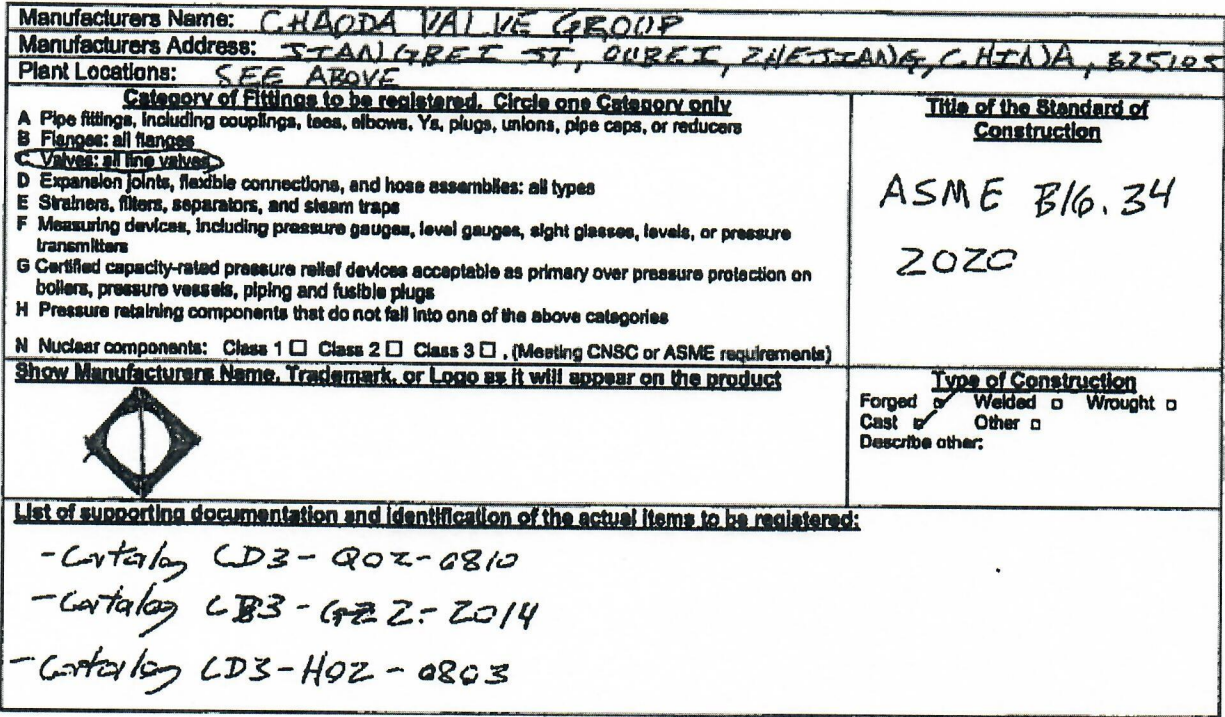 Manufacturers Name: CHAODA VALVE GROUP
Manufacturers Address: JIANGBEI ST, OUBEI, ZHEJIANG, CHINA, 325105
Plant Locations: SEE ABOVE
Category of Fittings to be registered. Circle one Category only
A Pipe fittings, including couplings, tees, elbows, Ys, plugs, unions, pipe caps, or reducers
B Flanges: all flanges
C Valves: all line valves
D Expansion joints, flexible connections, and hose assemblies: all types
E Strainers, filters, separators, and steam traps
F Measuring devices, including pressure gauges, level gauges, sight glasses, levels, or pressure
transmitters
G Certified capacity-rated pressure relief devices acceptable as primary over pressure protection on
boilers, pressure vessels, piping and fusible plugs
H Pressure retaining components that do not fall into one of the above categories
N Nuclear components: Class 1 ☐ Class 2 ☐ Class 3 ☐, (Meeting CNSC or ASME requirements)
Title of the Standard of
Construction
ASME B16.34
2020
Show Manufacturers Name, Trademark, or Logo as it will appear on the product
Type of Construction
Forged ☑ Welded ☐ Wrought ☐
Cast ☑ Other ☐
Describe other:
List of supporting documentation and identification of the actual items to be registered:
- Catalog CD3 - Q02 - 0810
- Catalog CD3 - GZ2 - 2014
- Catalog CD3 - H02 - 0803